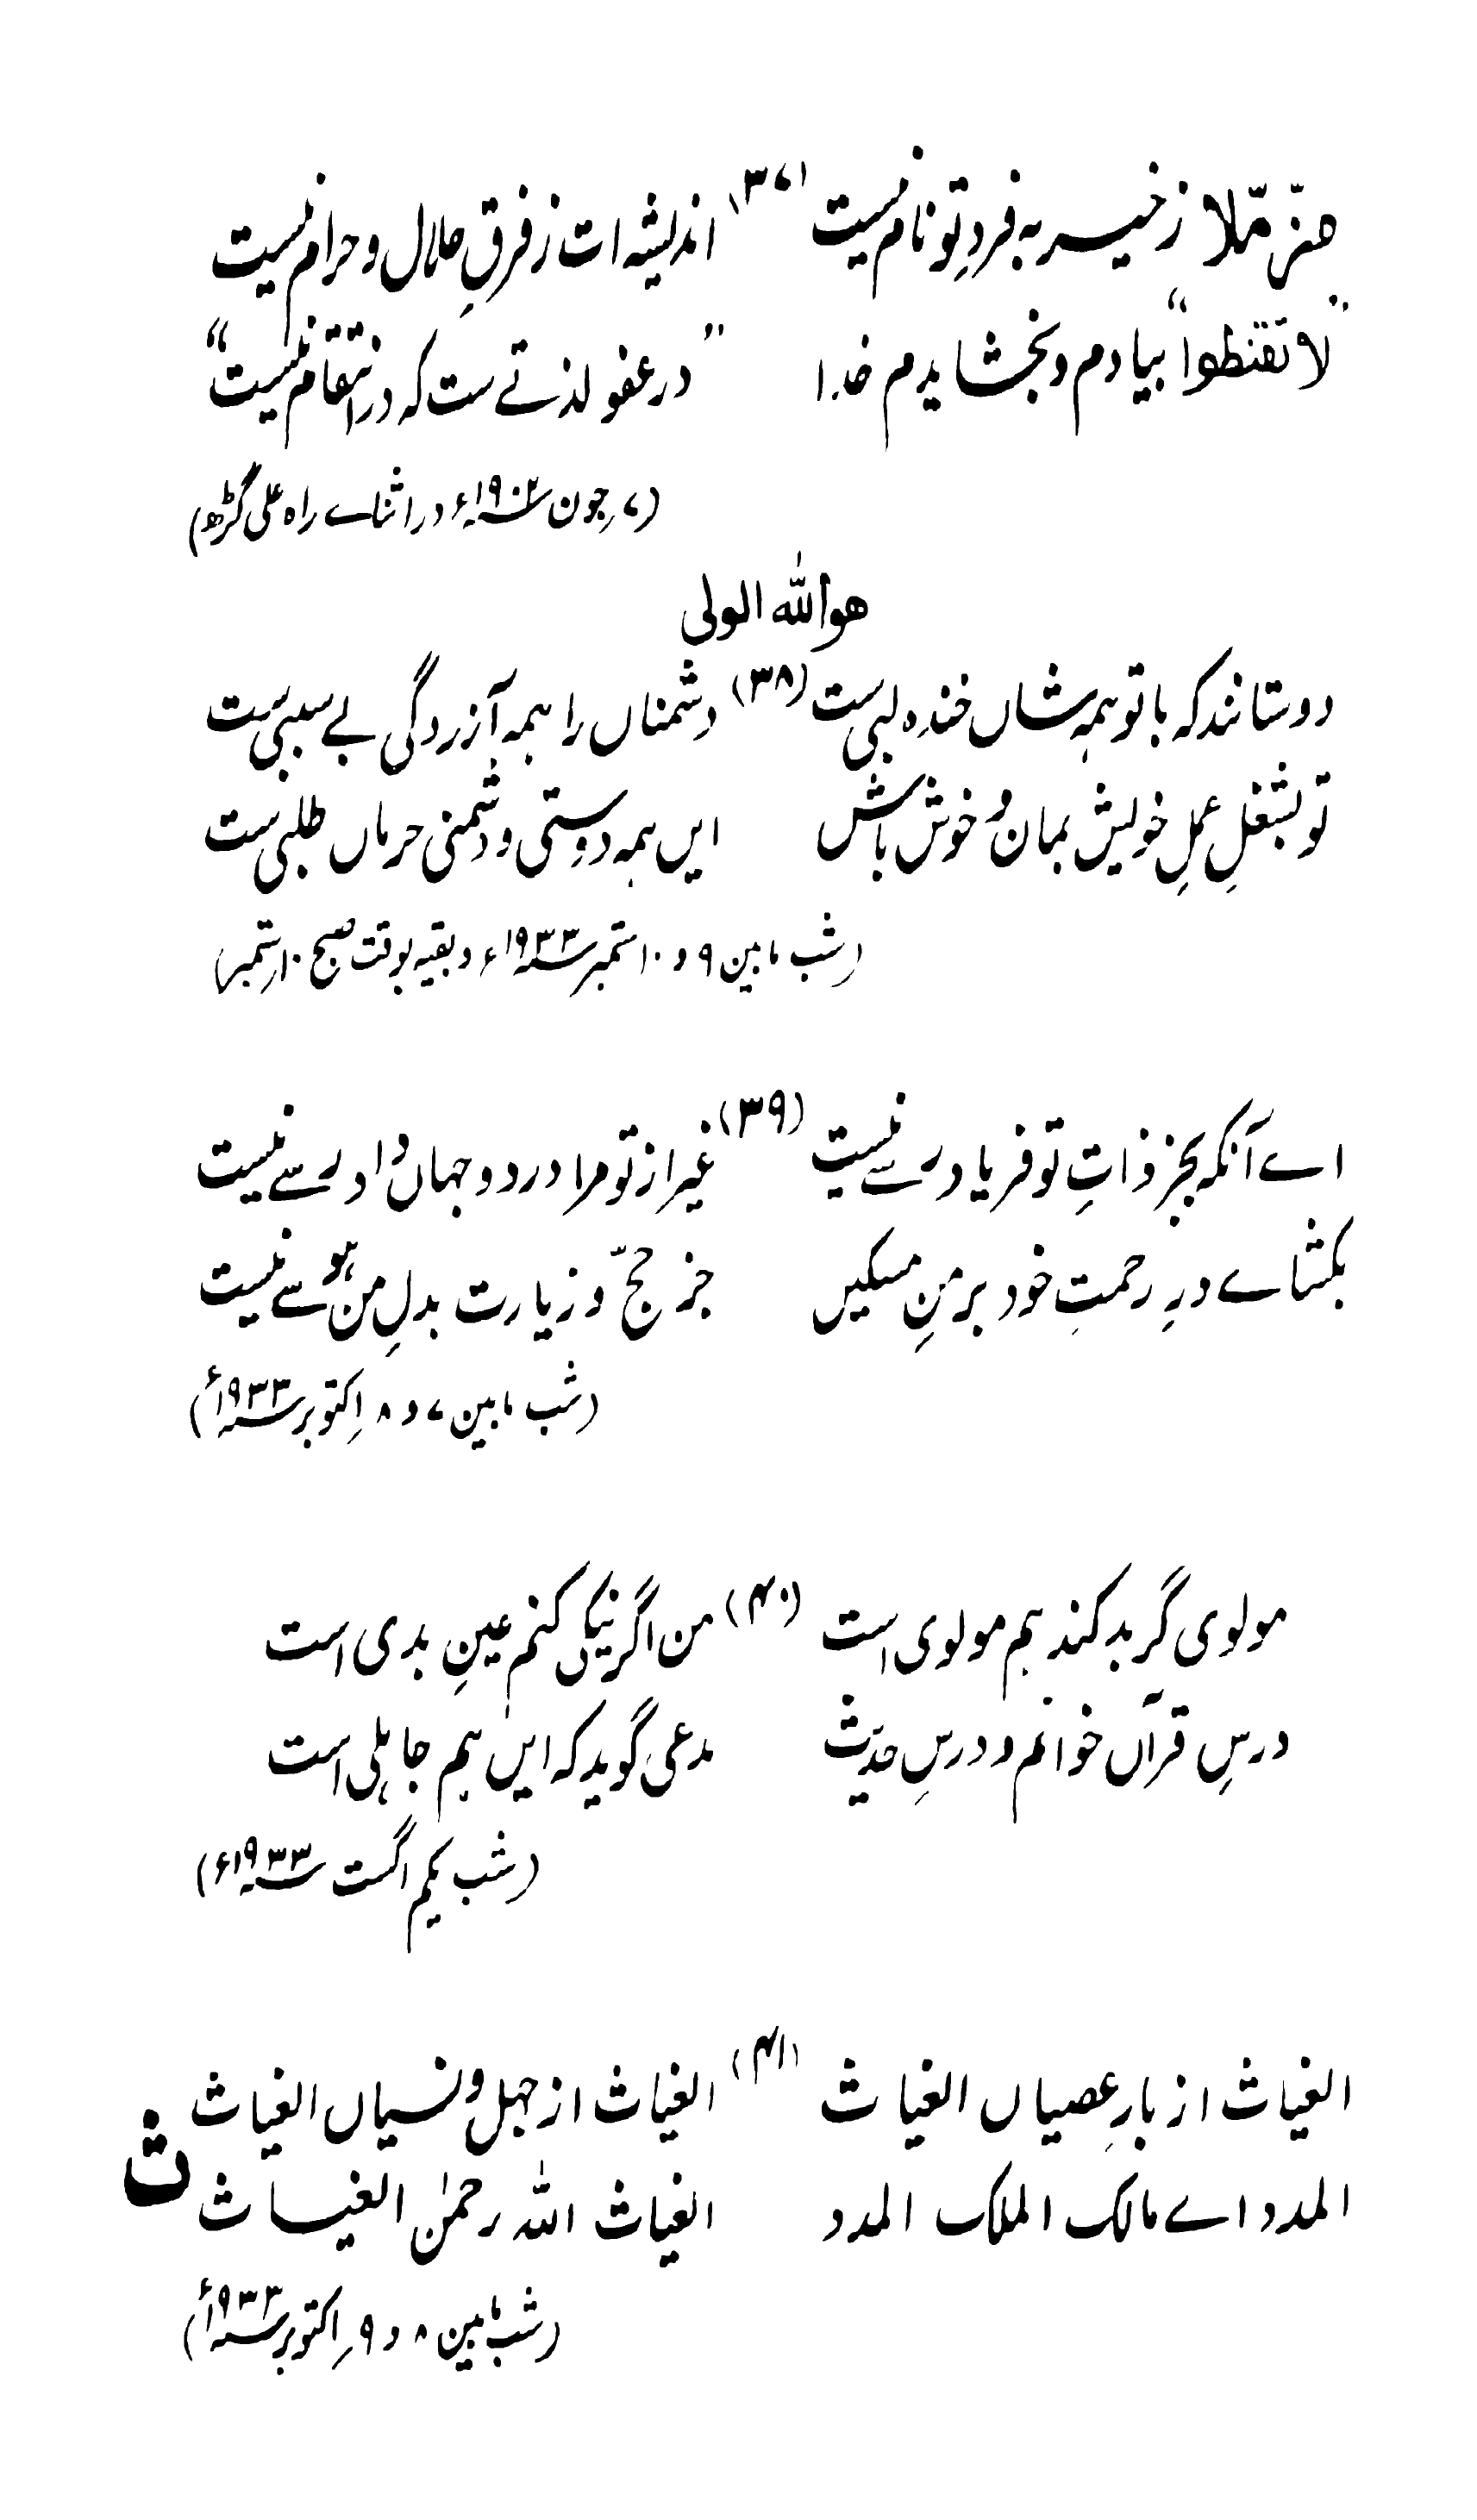 هنّ ملّا ز خیر به فردِ تو نام نیست (۳۷) اندیشه ات ز فرقِ حلال و حرام نیست
"لا تقنطوا" بیادم و بخشایدم خدا "در عفو لذتے ست که در انتقام نیست"
(۷ رجون ۱۹۰۲ء در اثنائے راه علی گڑھ)
هو الله الولی
دوستانند که با تو همه شاں خنده لبی ست (۳۸) دشمناں را همه آزردگی بے سببی ست
تو بشغلِ عملِ خویش بمان و خوش باش ایں همه دوستی و دشمنی حرماں طلبی ست
(شب مابین ۹ و ۱۰ ستمبر ۱۹۳۳ء و بقیه بوقت صبح ۱۰ ستمبر)
اے آنکه بجز ذاتِ تو فریاد رسے نیست (۳۹) غیر از تو مرا در دو جہاں داد رسے نیست
بکشاے درِ رحمتِ خود بر منِ مسکیں جز حجّ و زیارت بدلِ من ہوسے نیست
(شب مابین ۷ و ۸ اکتوبر ۱۹۳۳ء)
مولوی گر بد کند هم مولوی است (۴۰) من اگر نیکی کنم عینِ بدی است
درسِ قرآں خوانم و درسِ حدیث مدعی گوید که ایں هم جاہلی است
(شب یکم اگست ۱۹۳۳ء)
الغیاث از بارِ عصیاں الغیاث (۴۱) الغیاث از جہل و نسیاں الغیاث
ث
المدد اے مالک الملک المدد الغیاث الله رحمٰن الغیاث
(شب مابین ۸ و ۹ اکتوبر ۱۹۳۳ء)